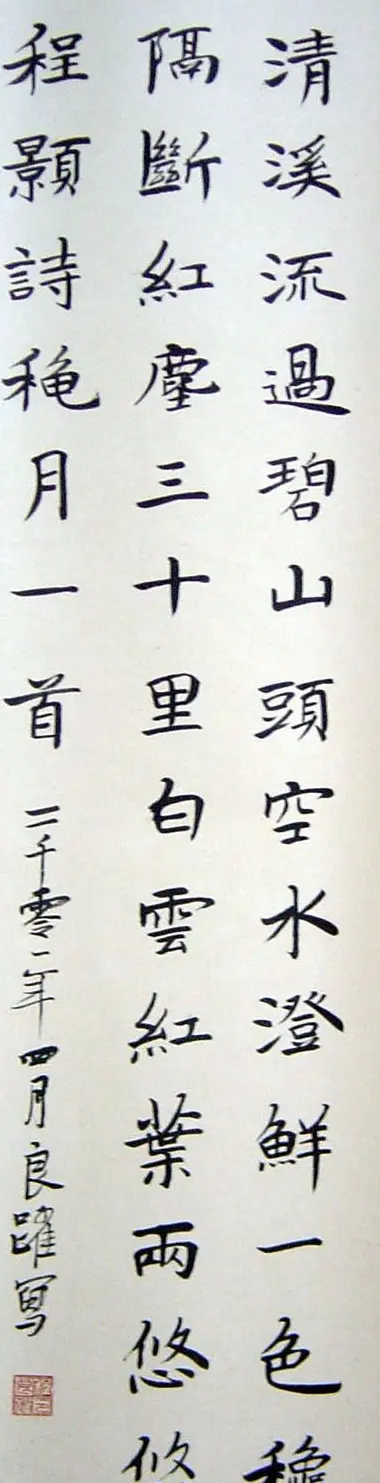 清溪流過碧山頭空水澄鮮一色穐
隔斷紅塵三十里白雲紅葉兩悠悠
程顥詩穐月一首
二千零一年四月良躍寫